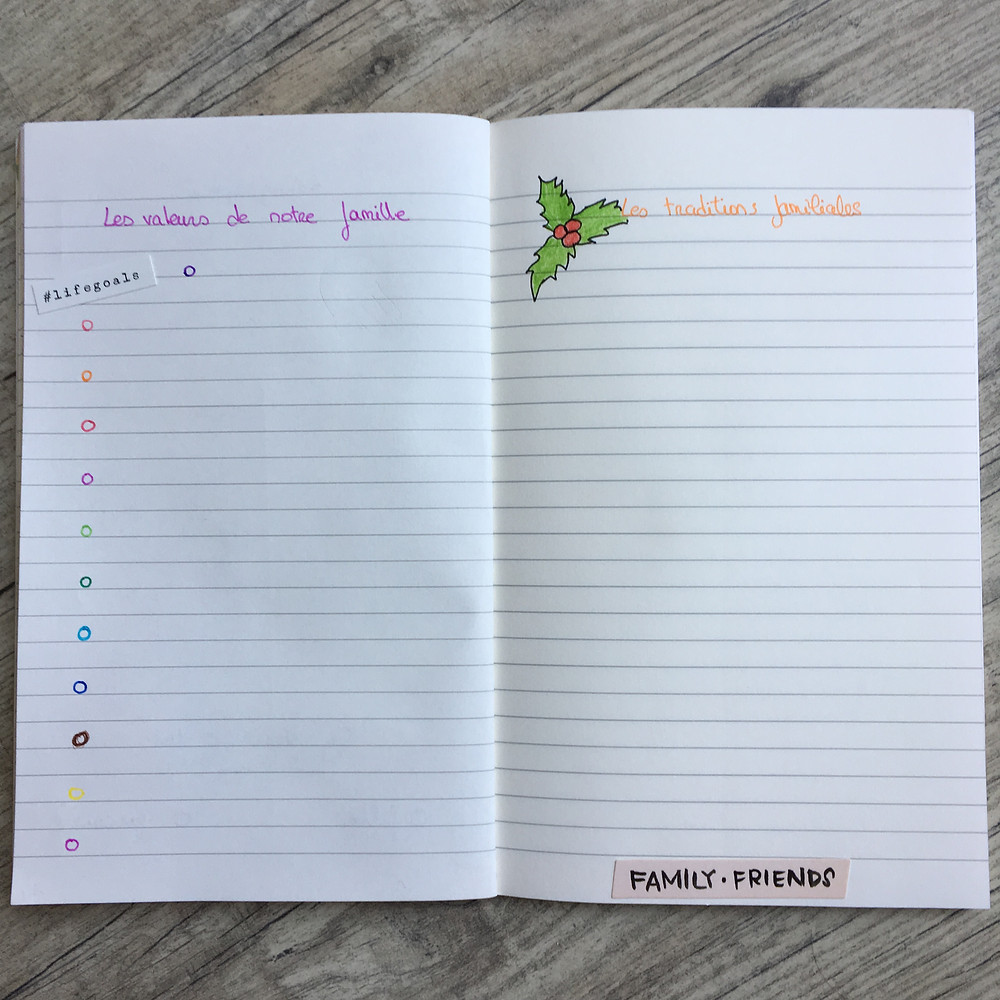 Les valeurs de notre famille
#lifegoals
Les traditions familiales
FAMILY · FRIENDS